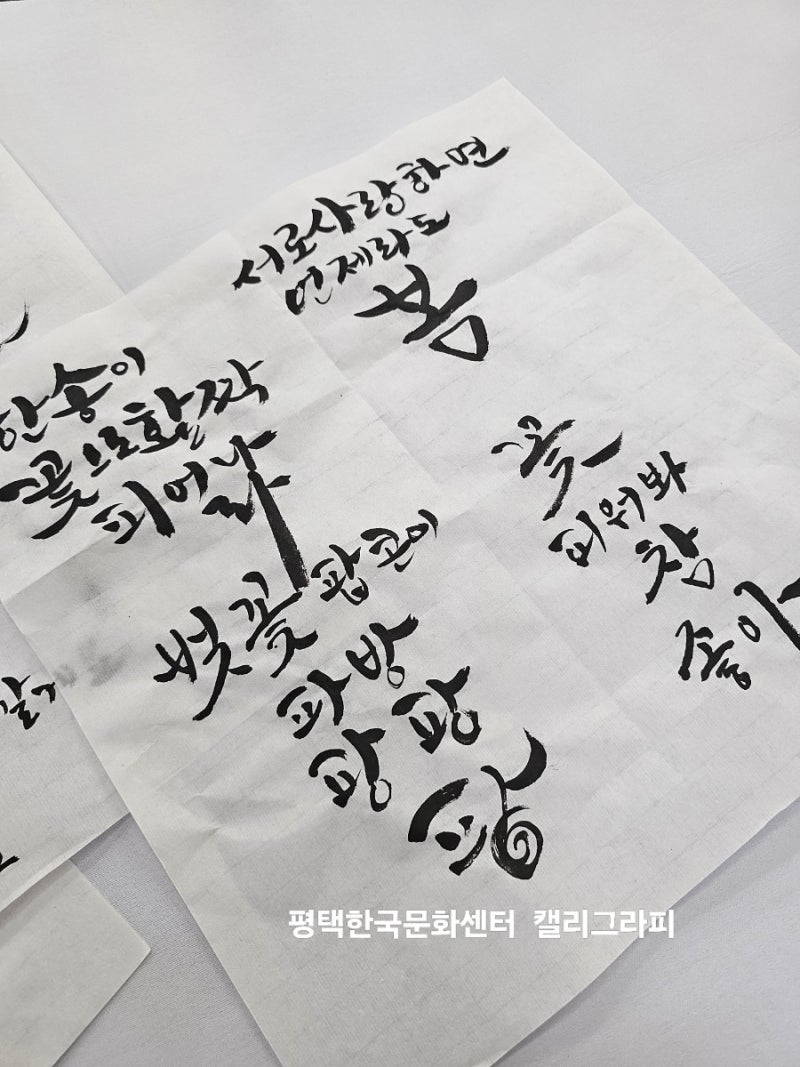 서로사랑하면
언제라도
봄
한송이
꽃으로활짝
피어나
라
꽃
피워봐
참
좋아
벚꽃팝콘이
파방
팡팡
팡
평택한국문화센터 캘리그라피